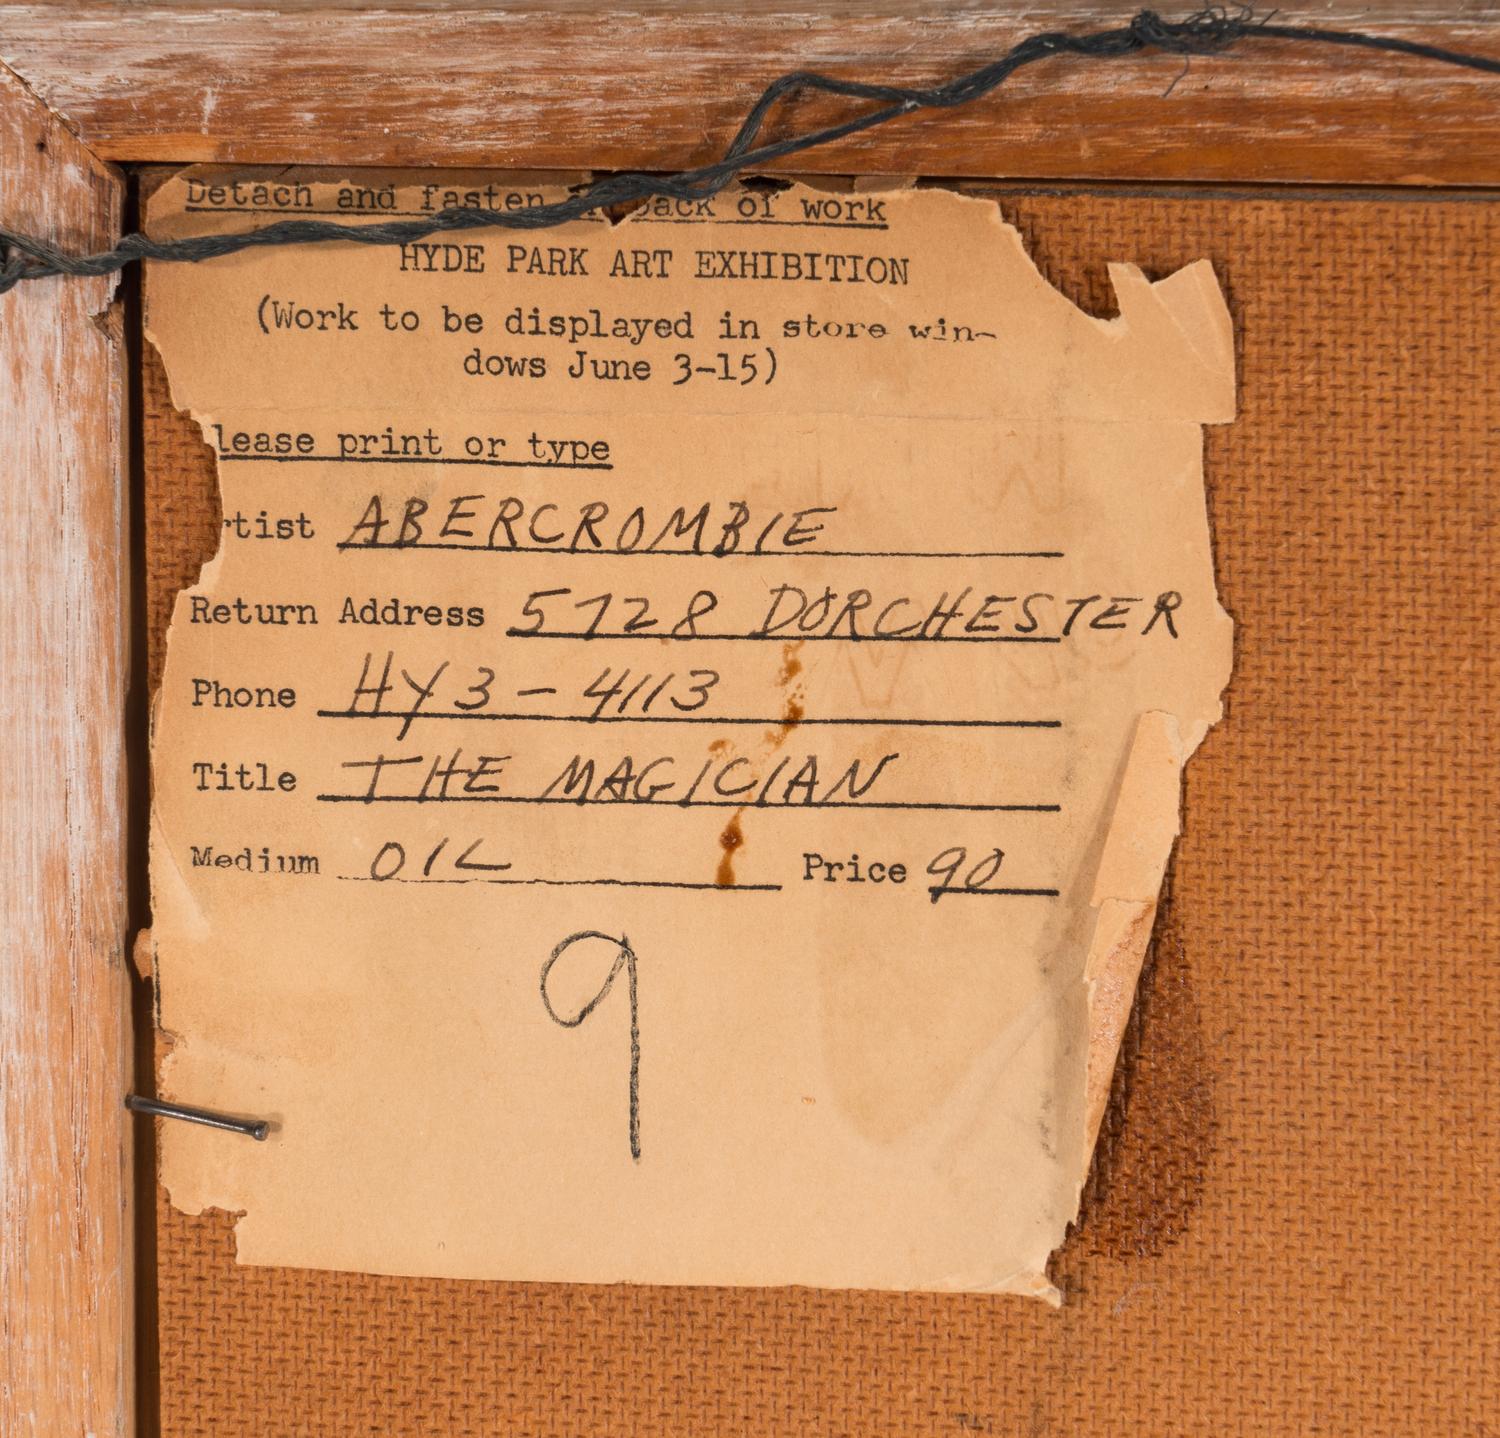 Detach and fasten on back of work
HYDE PARK ART EXHIBITION
(Work to be displayed in store win-
dows June 3-15)
lease print or type
rtist ABERCROMBIE
Return Address 5728 DORCHESTER
Phone HY3-4113
Title THE MAGICIAN
Medium OIL Price 90
9